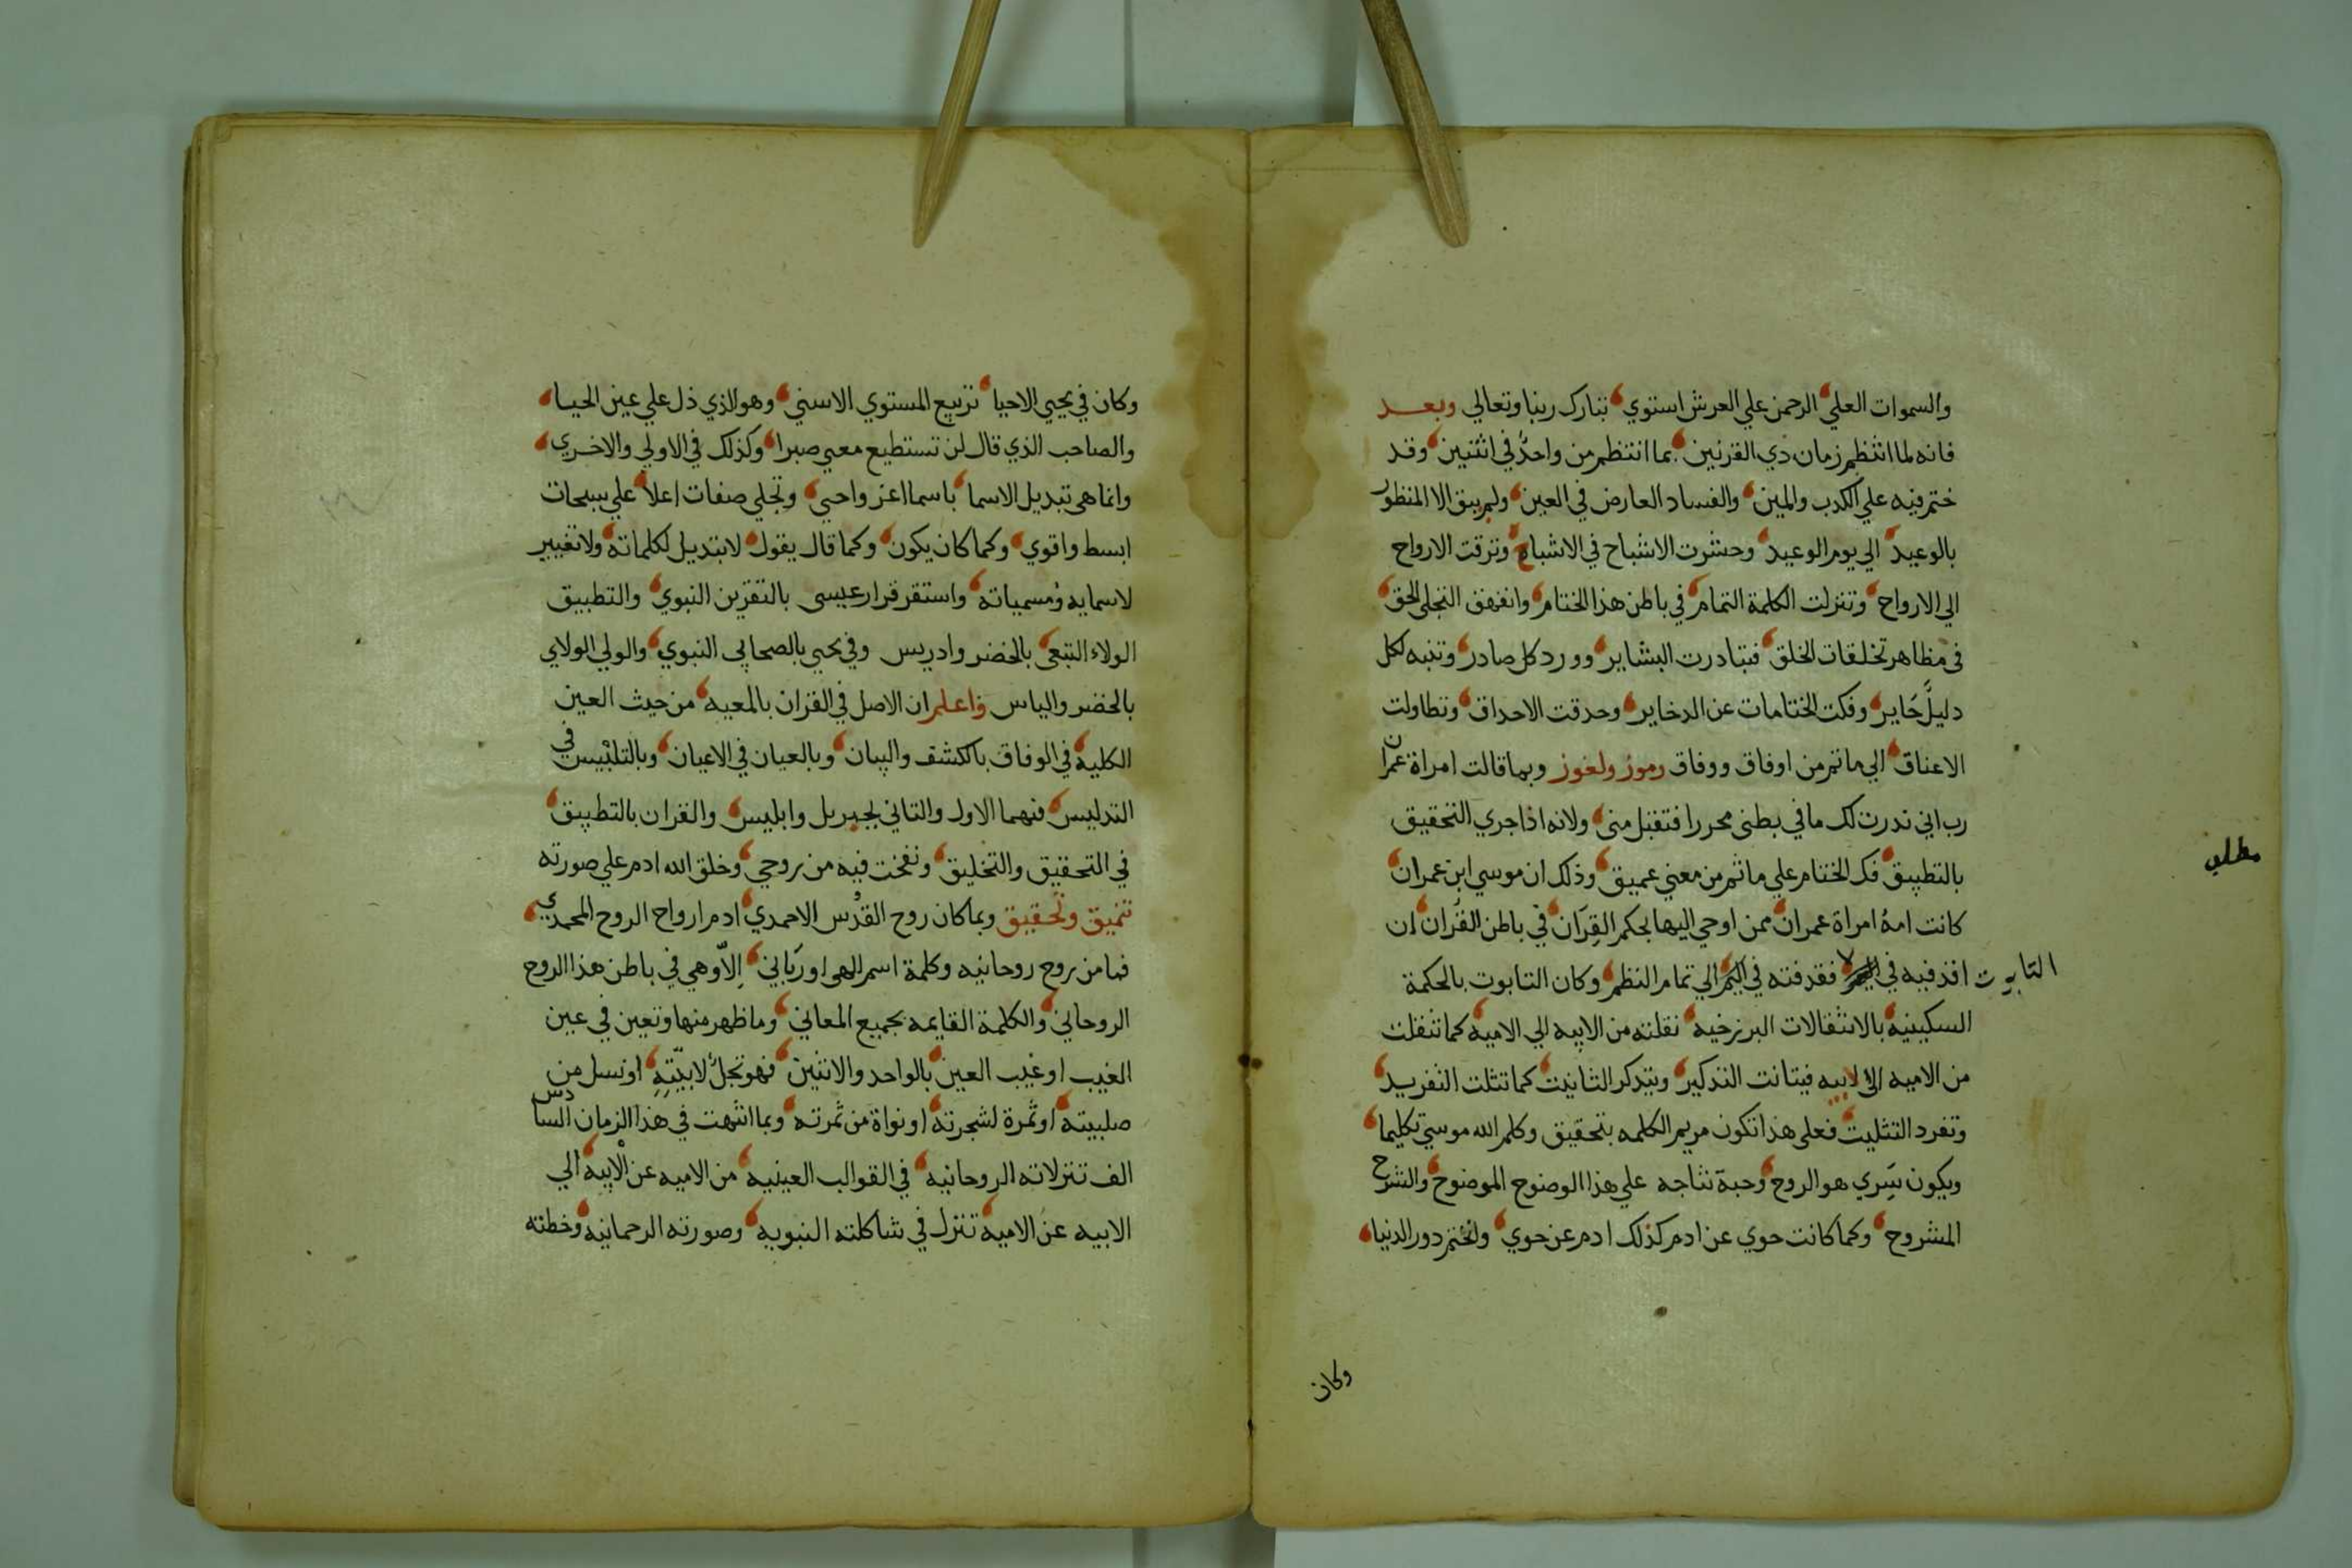 والسموات العلي الرحمن علي العرش استوي تبارك ربنا وتعالي وبعد
فانه لما انتظم زمان ذي القرنين بما انتظم من واحد في اثنين وقد
ختم فيه علي الكدب والمين والفساد العارض في العين ولم يبق الا المنظور
بالوعيد الي يوم الوعيد وحشرت الاشباح في الاشباح وترقت الارواح
الي الارواح وتنزلت الكلمة التمام في باطن هذا الختام وانفهق التجلي الحق
في مظاهر تخلقات الخلق فتبادرت البشاير وورد كل صادر وتنبه لكل
دليل حاير وفكت الختامات عن الدخاير وحدقت الاحداق وتطاولت
الاعناق الي ما تم من اوفاق ووفاق رموز ولغوز وبما قالت امراة عمران
رب اني ندرت لك ما في بطني محررا فتقبل مني ولانه اذا جري التحقيق
بالتطبيق فك الختام علي ما تم من معني عميق وذلك ان موسي ابن عمران
مطلب
كانت امه امراة عمران ممن اوحي اليها بحكم القران في باطن القران ان
اقذفيه في التابوت فقدفته في اليم الي تمام النظم وكان التابوت بالحكمة
السكينيه بالانتقالات البرزخيه نقلته من الابيه الي الاميه كما تنقلت
من الاميه الي الابيه فيتانت التدكير ويتدكر التانيت كما تثلت التفريد
وتفرد التثليت فعلي هذا تكون مريم الكلمه بتحقيق وكلم الله موسي تكليما
ويكون سري هو الروح وحبة نتاجه علي هذا الوضوح الموضوح والشرح
المشروح وكما كانت حوي عن ادم كذلك ادم عن حوي ولختم دور الدنيا
وكان
وكان في يحيي الاحيا تربيع المستوي الاسني وهو الذي دل علي عين الحيا
والصاحب الذي قال لن تستطيع معي صبرا وكذلك في الاولي والاخري
وانما هي تبديل الاسما باسما اعز واحيي وتجلي صفات اعلا علي سبحات
ابسط واقوي وكما كان يكون وكما قال يقول لا تبديل لكلماته ولا تغيير
لاسمايه ومسمياته واستقر قرار عيسي بالتقرين النبوي والتطبيق
الولاء التبعي بالخضر وادريس وفي يحيي بالصحابي النبوي والولي الولاي
بالخضر والياس واعلم ان الاصل في القران بالمعيه من حيث العين
الكليه في الوفاق بالكشف والبيان وبالعيان في الاعيان وبالتلبيس في
التدليس فنهما الاول والتاني لجبريل وابليس والقران بالتطبيق
في التحقيق والتخليق ونفخت فيه من روحي وخلق الله ادم علي صورته
تنميق وتحقيق وبما كان روح القدس الاحمدي ادم ارواح الروح المحمدي
فما من روح روحانيه وكلمة اسم الهي او رباني الا وهي في باطن هذا الروح
الروحاني والكلمة القايمه بجميع المعاني وما ظهر منها وتعين في عين
الغيب او غيب العين بالواحد والاثنين فهو نجل لابيته او نسل من
صلبيته او ثمرة لشجرته او نواة من ثمرته وبما انتهت في هذا الزمان السادس
الف تنزلاته الروحانيه في القوالب العينيه من الاميه عن الابيه الي
الابيه عن الاميه تنزل في شاكلته النبويه وصورته الرحمانيه وخطته